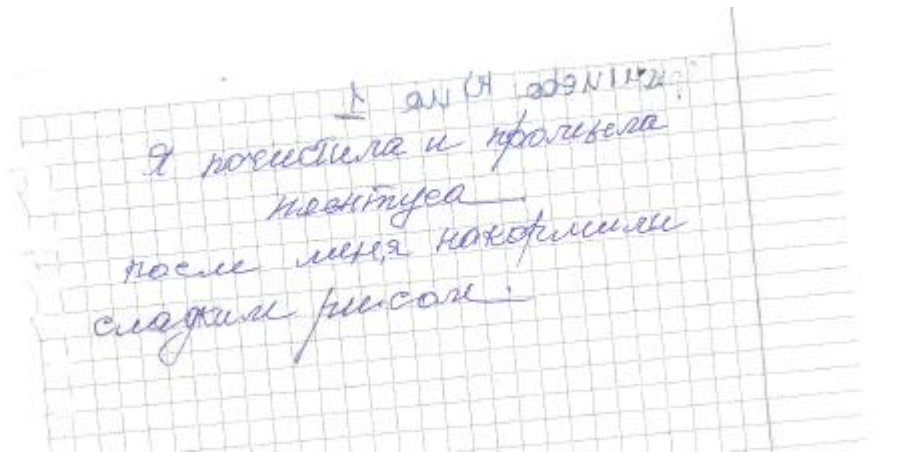 Я почистила и промыла
плентуса
после меня накормили
сладким рисом.